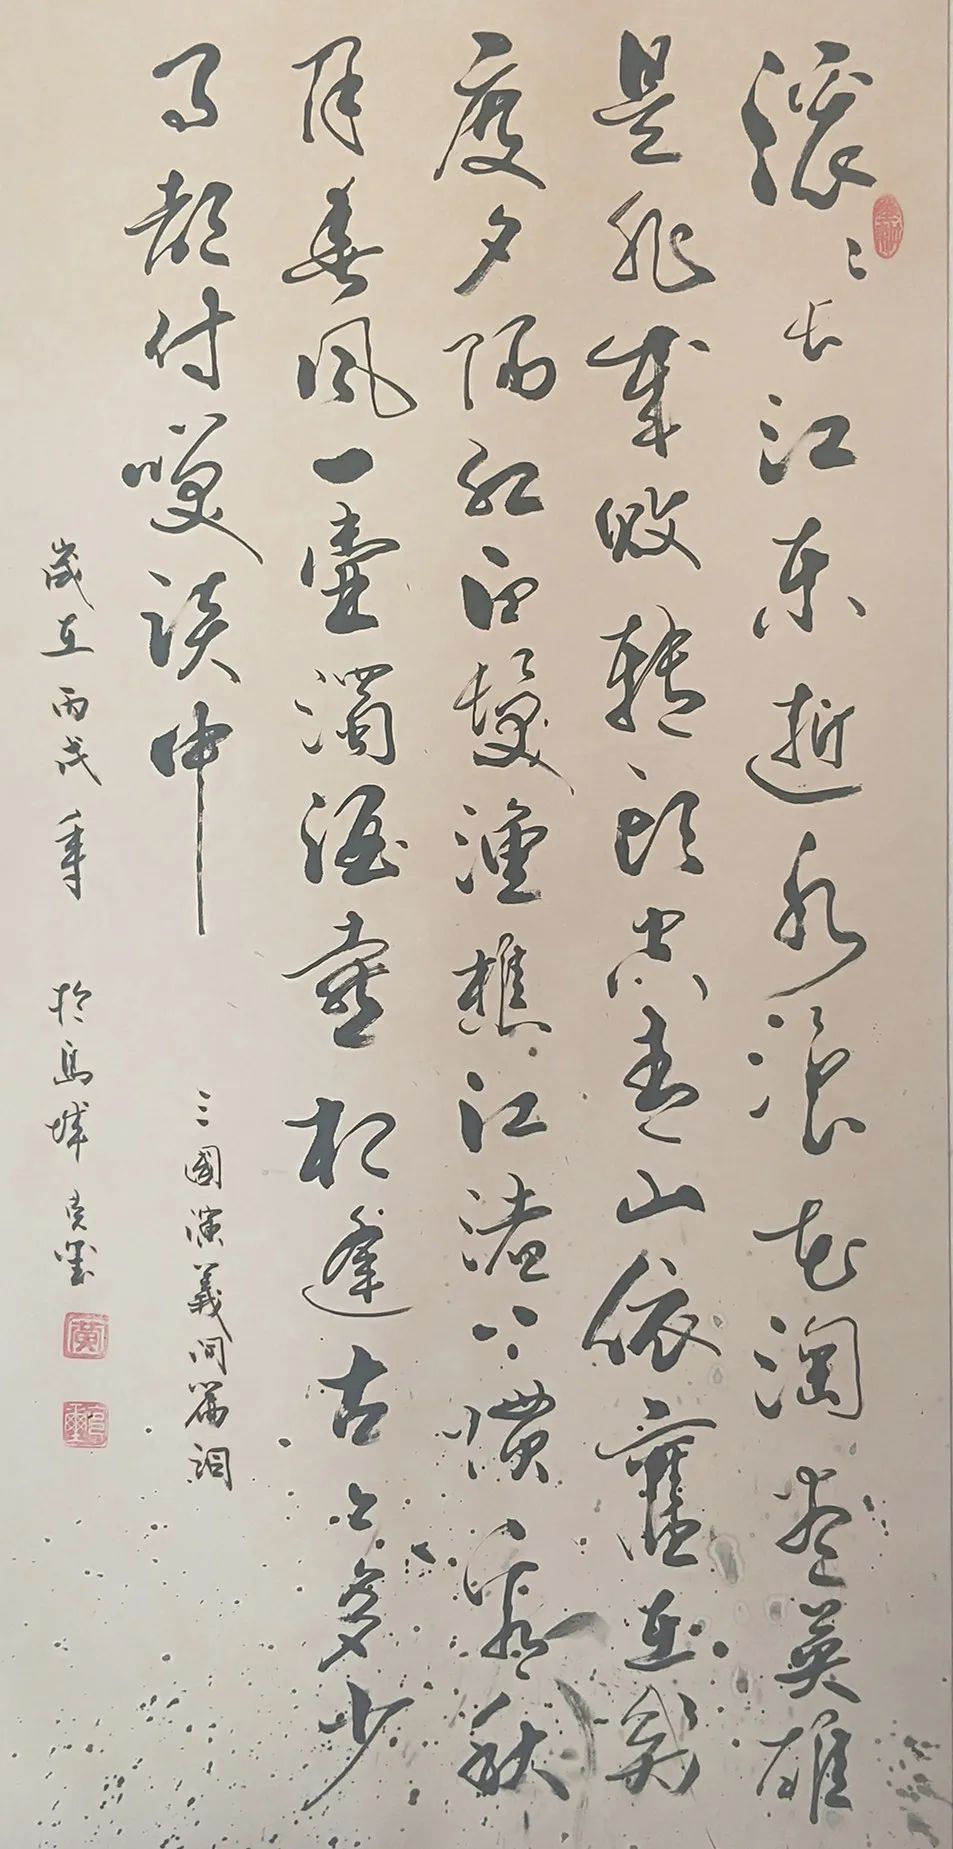 滚〻长江东逝水浪花淘尽英雄
是非成败转头空青山依舊在幾
度夕陽红白髮渔樵江渚上惯看秋
月春风一壶濁酒喜相逢古今多少
事都付笑谈中
三國演義開篇詞
歲在丙戌年 於烏城
黄